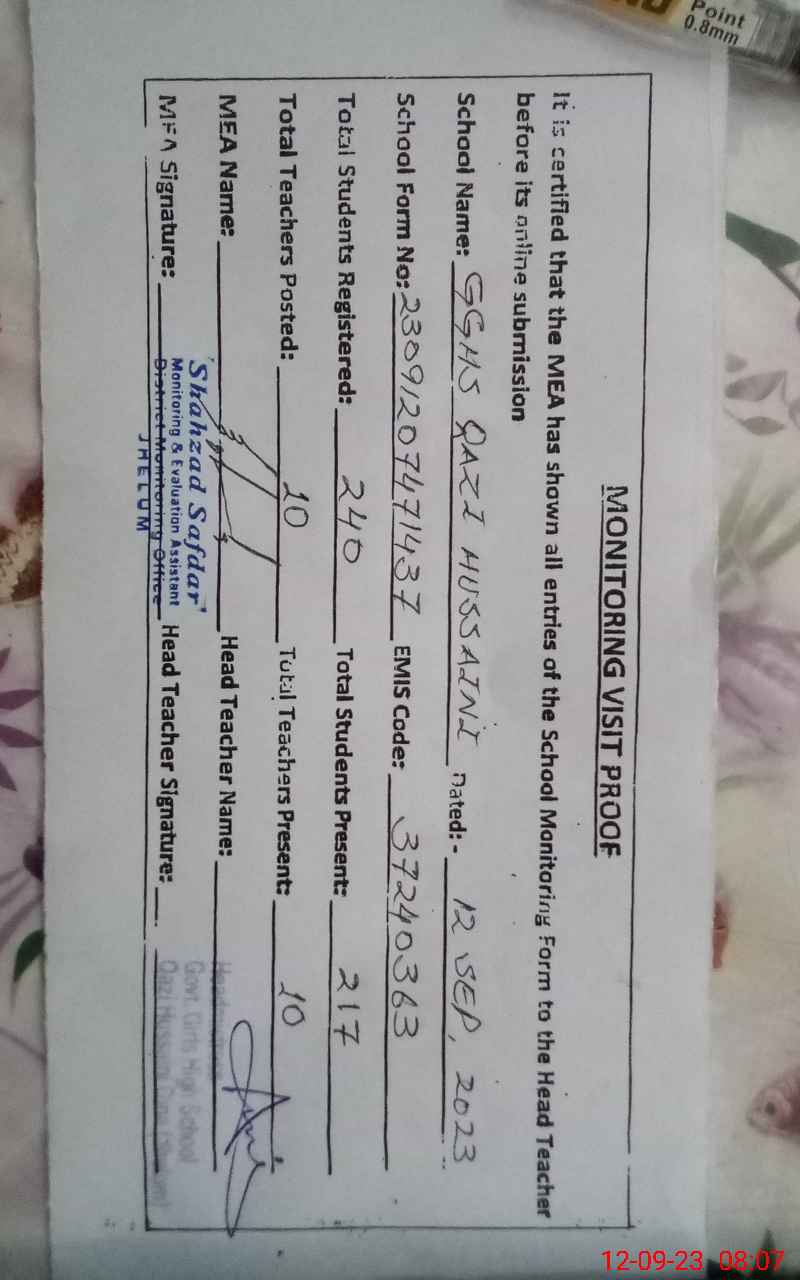 Point
0.8mm
MONITORING VISIT PROOF
It is certified that the MEA has shown all entries of the School Monitoring Form to the Head Teacher
before its online submission
School Name: GGHS QAZI HUSSAINI Dated:- 12 SEP, 2023
School Form No: 23091207471437 EMIS Code: 37240363
Total Students Registered: 240 Total Students Present: 217
Total Teachers Posted: 10 Total Teachers Present: 10
MEA Name: Head Teacher Name:
'Shahzad Safdar'
Monitoring & Evaluation Assistant
District Monitoring Office
JHELUM
MEA Signature: Head Teacher Signature:
Govt. Girls High School
Qazi Hussain
12-09-23 08:07